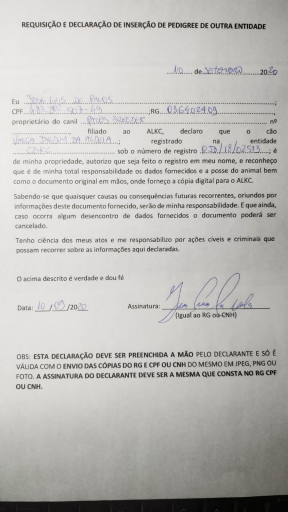 REQUISIÇÃO E DECLARAÇÃO DE INSERÇÃO DE PEDIGREE DE OUTRA ENTIDADE
10 de SETEMBRO 2020
Eu
CPF RG 036402409
proprietário do canil nº
filiado ao ALKC, declaro que o cão
registrado na entidade
sob o número de registro , é
de minha propriedade, autorizo que seja feito o registro em meu nome, e reconheço
que é de minha total responsabilidade os dados fornecidos e a posse do animal bem
como o documento original em mãos, onde forneço a cópia digital para o ALKC.
Sabendo-se que quaisquer causas ou consequências futuras recorrentes, oriundos por
informações deste documento fornecido, serão de minha responsabilidade. E que ainda,
caso ocorra algum desencontro de dados fornecidos o documento poderá ser
cancelado.
Tenho ciência dos meus atos e me responsabilizo por ações cíveis e criminais que
possam recorrer sobre as informações aqui declaradas.
O acima descrito é verdade e dou fé
Data: 10/09/2020 Assinatura:
(Igual ao RG ou CNH)
OBS: ESTA DECLARAÇÃO DEVE SER PREENCHIDA A MÃO PELO DECLARANTE E SÓ É
VÁLIDA COM O ENVIO DAS CÓPIAS DO RG E CPF OU CNH DO MESMO EM JPEG, PNG OU
FOTO. A ASSINATURA DO DECLARANTE DEVE SER A MESMA QUE CONSTA NO RG CPF
OU CNH.